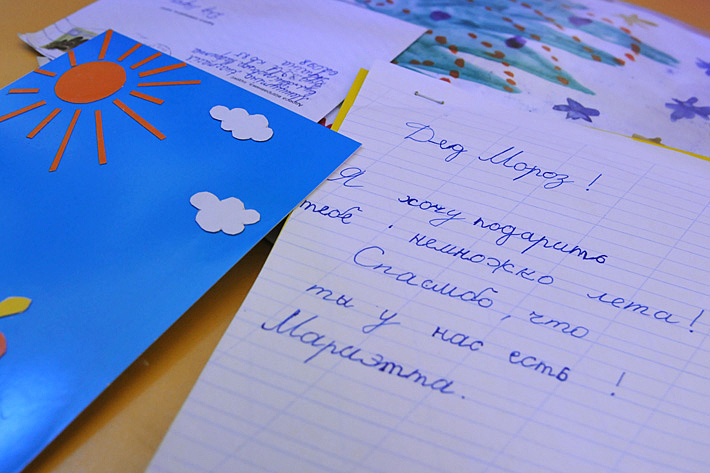 Дед Мороз!
Я хочу подарить
тебе, немножко лета!
Спасибо, что
ты у нас есть!
Мариэтта.